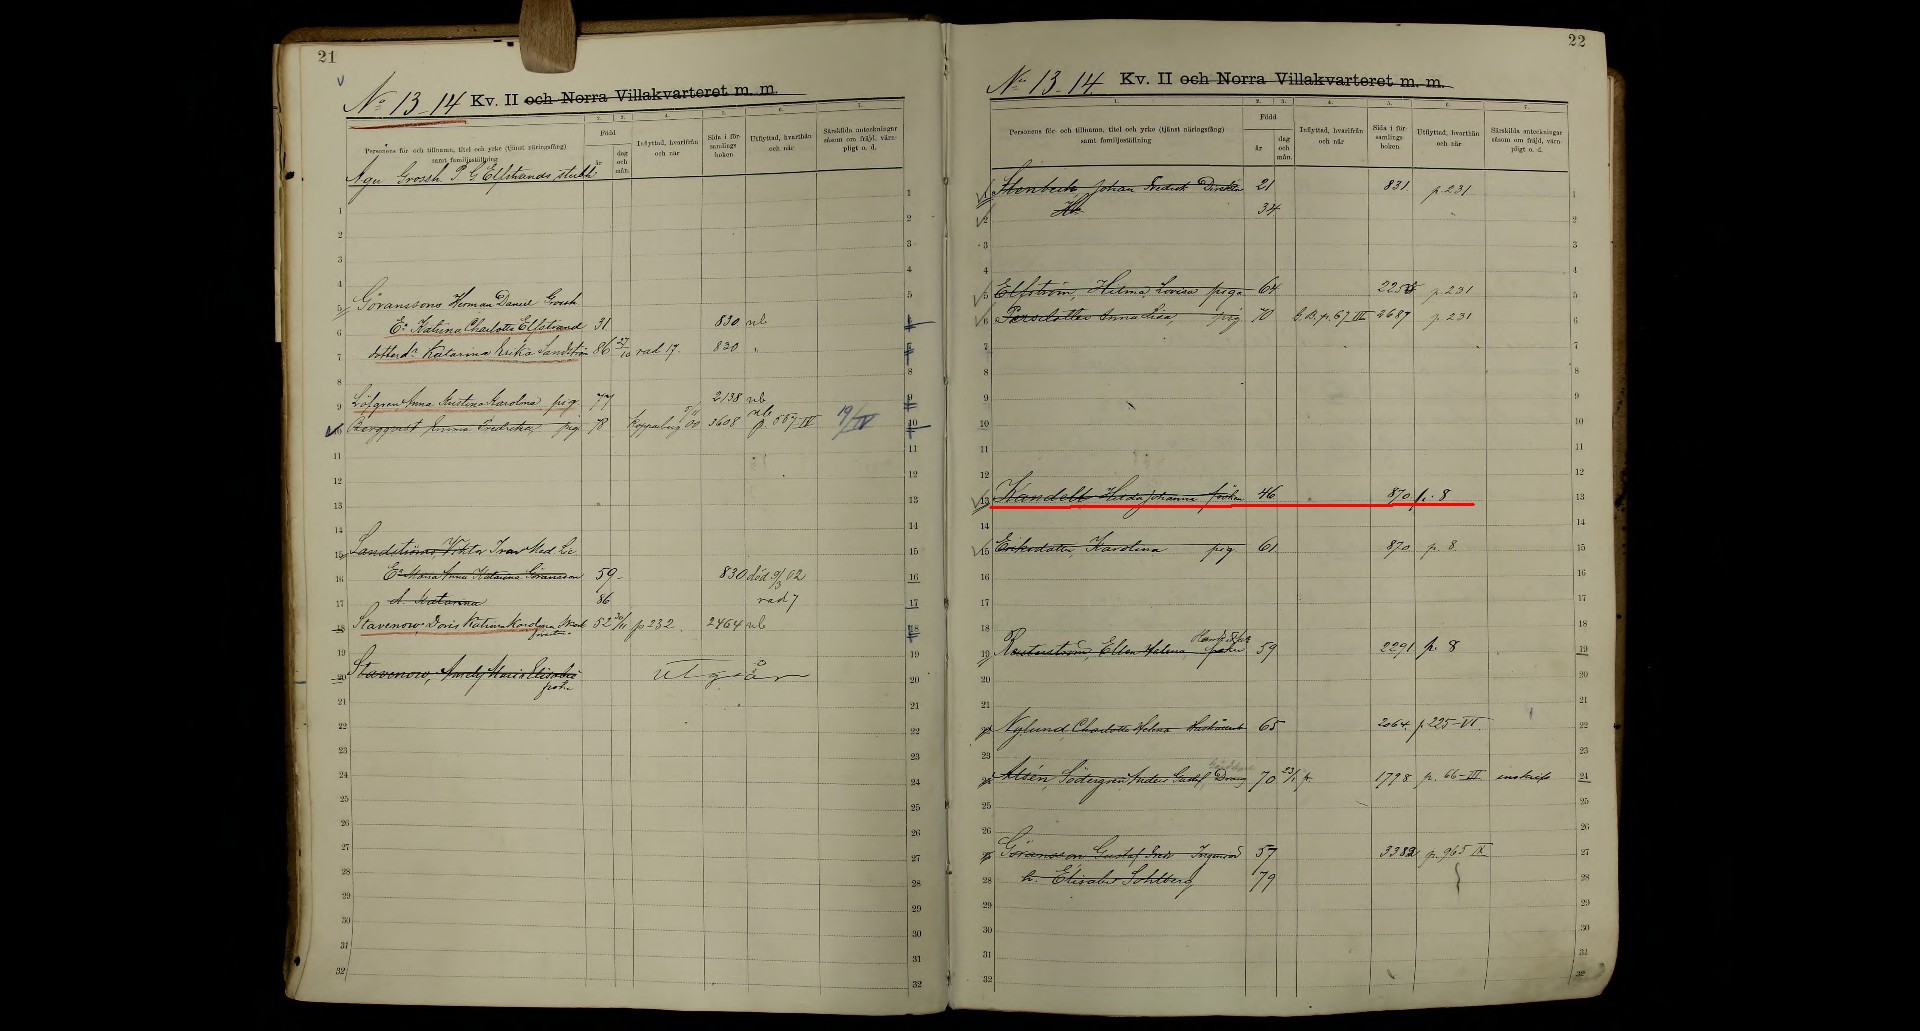 21
No 13-14 Kv. II och Norra Villakvarteret m. m.
1. 2. 3. 4. 5. 6. 7.
Personens för- och tillnamn, titel och yrke (tjänst näringsfång) samt familjeställning
Född
år
dag och mån.
Inflyttad, hvarifrån och när
Sida i församlings boken
Utflyttad, hvarthän och när
Särskilda anteckningar såsom om fräjd, värnpligt o. d.
Äger Grossh. P G Elfstrands
1
2
3
4
5 Göranssons Herman Daniel Grossh
6 Ea Katrina Charlotta Elfstrand 31 830 nb
7 dotterdr Katarina Erika Sandström 86 27/10 rad 17. 830 "
8
9 Löfgren Anna Kristina Karolina pig 77 2138 nb
10 Bergqvist Emma Fredrika pig 78 Kopparberg 00 3608 nb p. 557-IV 19/IV
11
12
13
14
15 Sandströms Viktor Ivar Med Lic
16 Ea Maria Anna Katarina Göransson 59 830 död 9/3 02
17 d. Katarina 86 rad 7
18 Stavenow Doris Katrina Karolina 52 30/11 p 232 2464 nb
19
20 Stavenow, Maria Elisabet utgår
21
22
23
24
25
26
27
28
29
30
31
32
22
No 13-14 Kv. II och Norra Villakvarteret m. m.
1. 2. 3. 4. 5. 6. 7.
Personens för- och tillnamn, titel och yrke (tjänst näringsfång) samt familjeställning
Född
år
dag och mån.
Inflyttad, hvarifrån och när
Sida i församlings boken
Utflyttad, hvarthän och när
Särskilda anteckningar såsom om fräjd, värnpligt o. d.
1 Stenbeck Johan Fredrik Direktör 21 831 p. 231
2 34
3
4
5 Elfström, Hilma Lovisa piga 64 p. 231
6 Persdotter Anna Lisa, pig 70 p. 67 III 2687 p. 231
7
8
9
10
11
12
13 Kandell Hedda Johanna fröken 46 870 p. 8
14
15 Eriksdotter, Karolina pig 61 870 p. 8
16
17
18
19 Ellen Helena fröken 59 2291 p. 8
20
21
22 Nylund Charlotta Helena 65 2064 p. 225-VI
23
24 Alsén, Södergren Anders Gustaf, Dräng 70 23/1 1798 p. 66-III inskrifs
25
26
27 Göransson Gustaf Ingeniör 57 3382 p. 965 IX
28 h. Elisabet Sohlberg 79
29
30
31
32